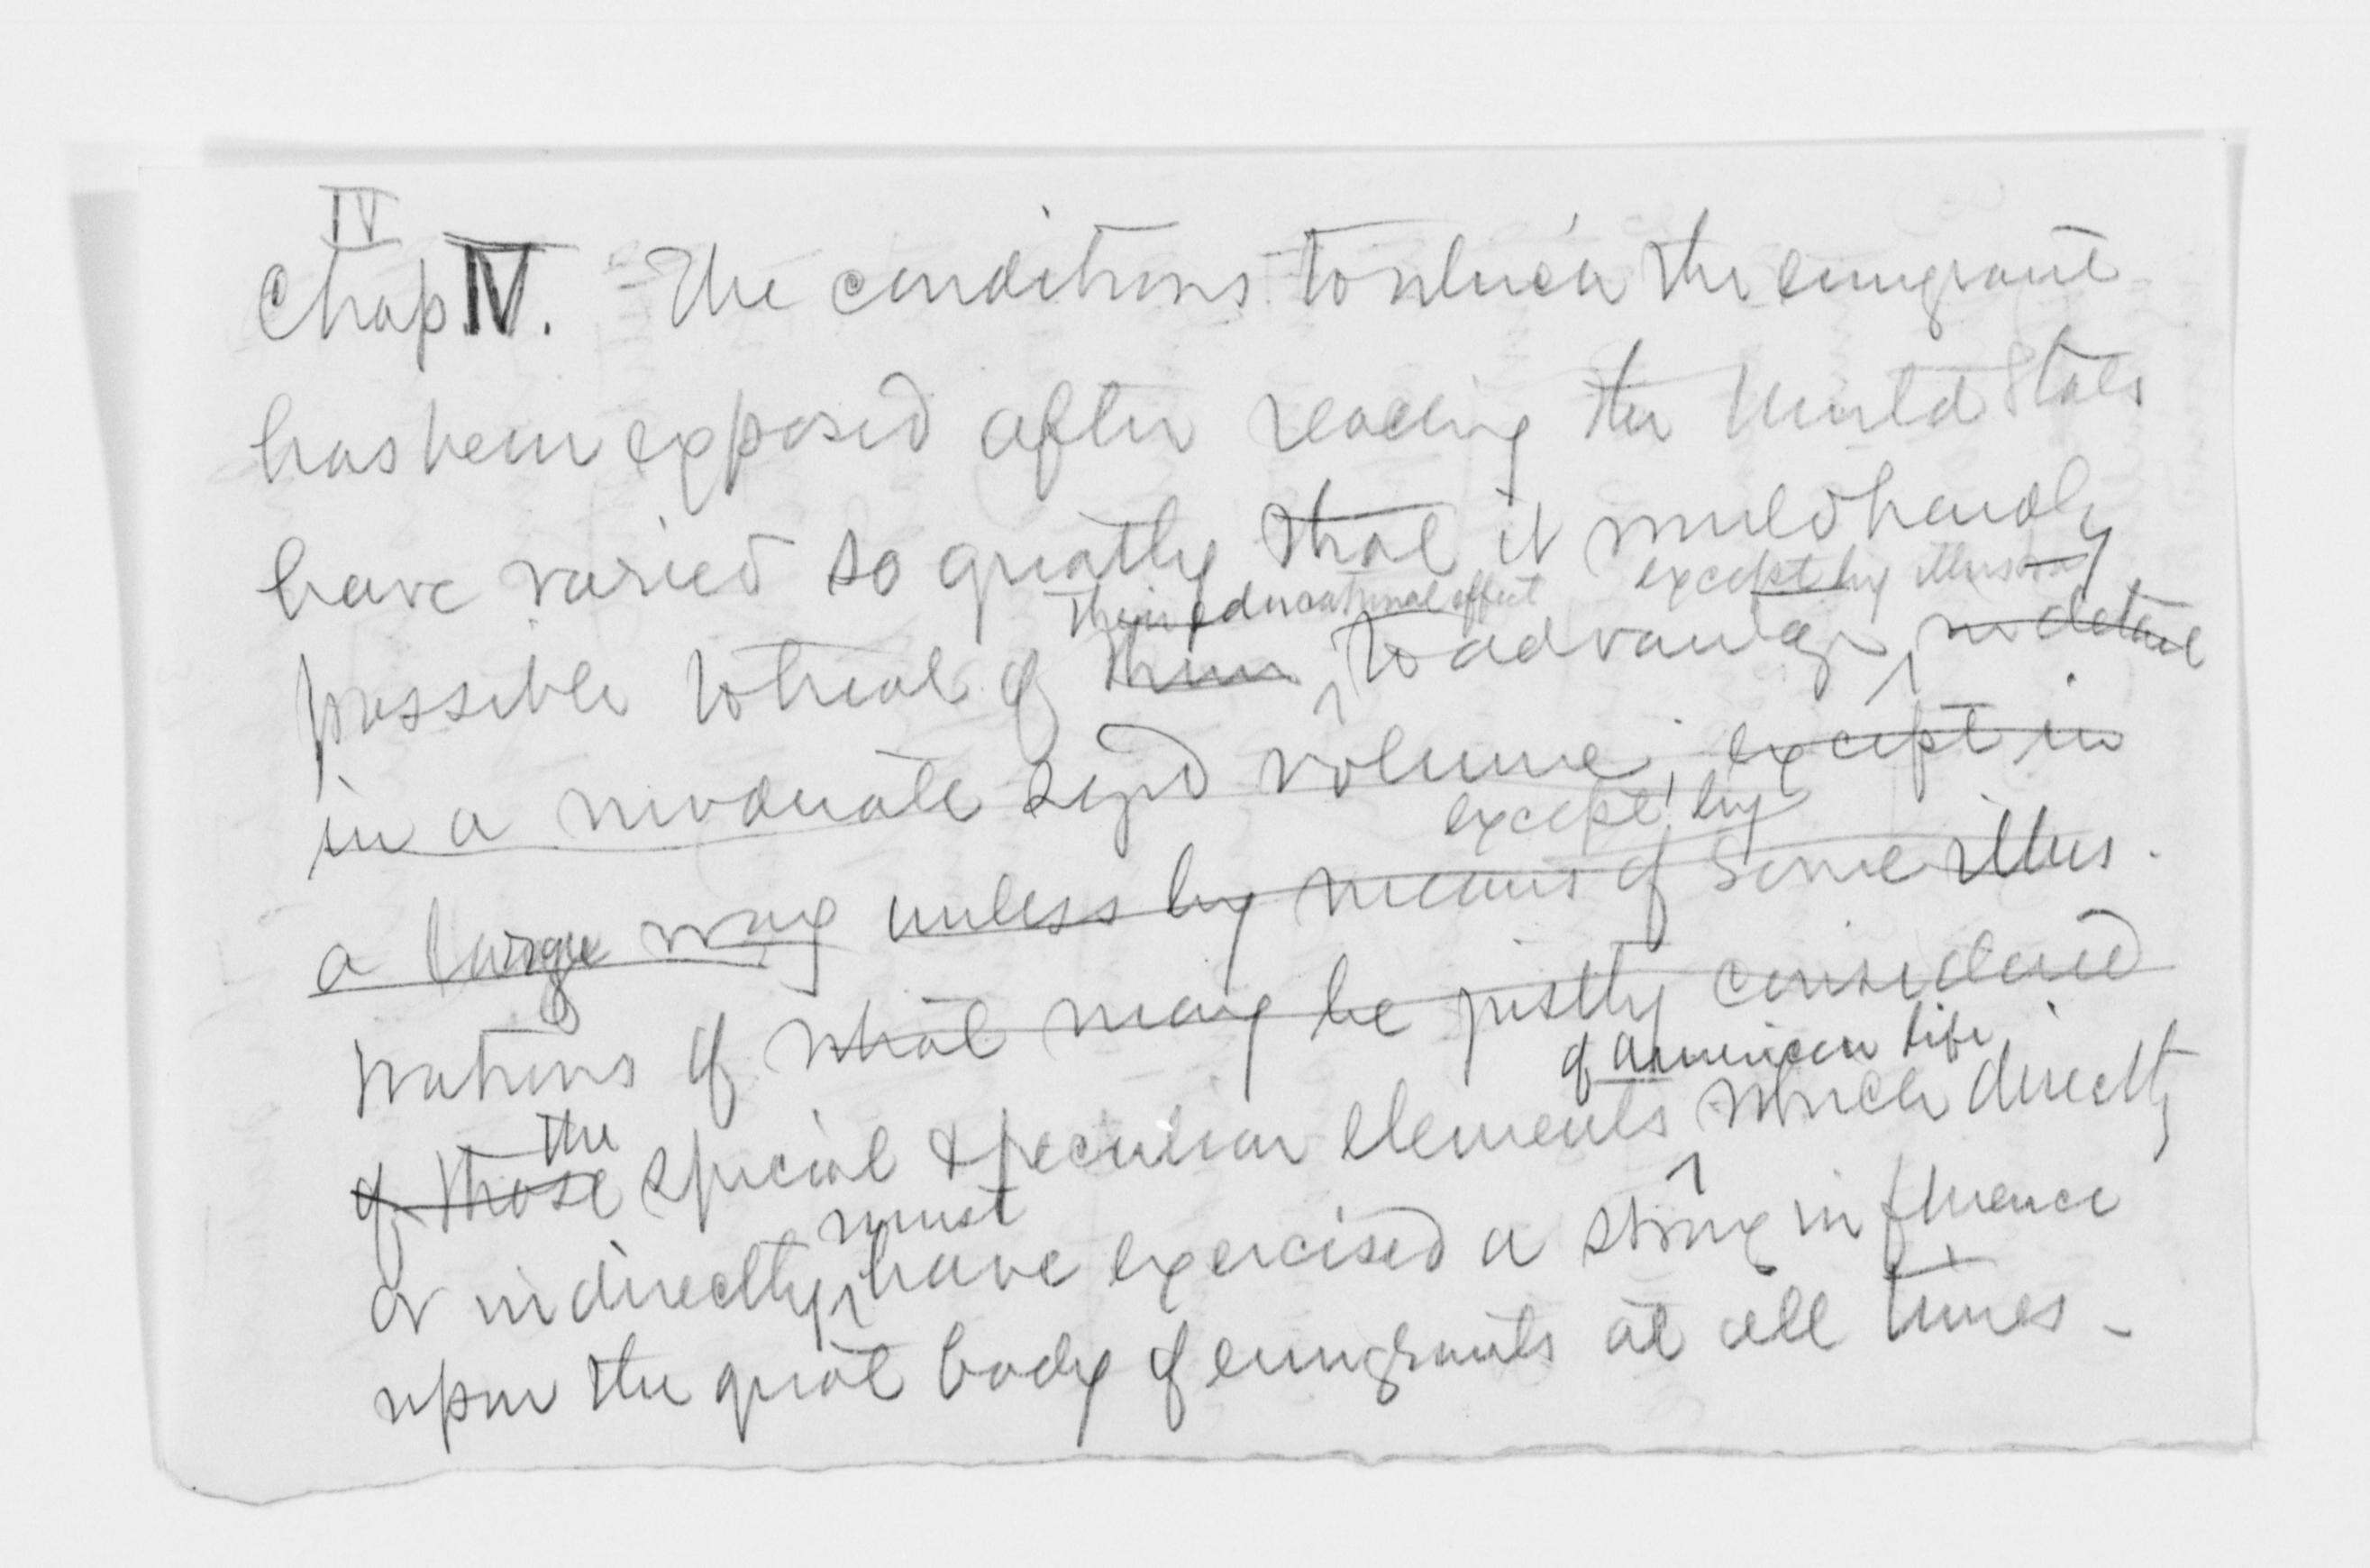 IV
Chap IV. The conditions to which the emigrant
has been exposed after reaching the United States
have varied so greatly that it would hardly
their educational effect except by illustra
possible to treat of them to advantage in detail
in a moderate sized volume, except in
except by
a large way unless by means of some illus-
trations of what may be justly considered
of American life
the
of those special & peculiar elements which directly
must
or indirectly have exercised a strong influence
upon the great body of emigrants at all times -